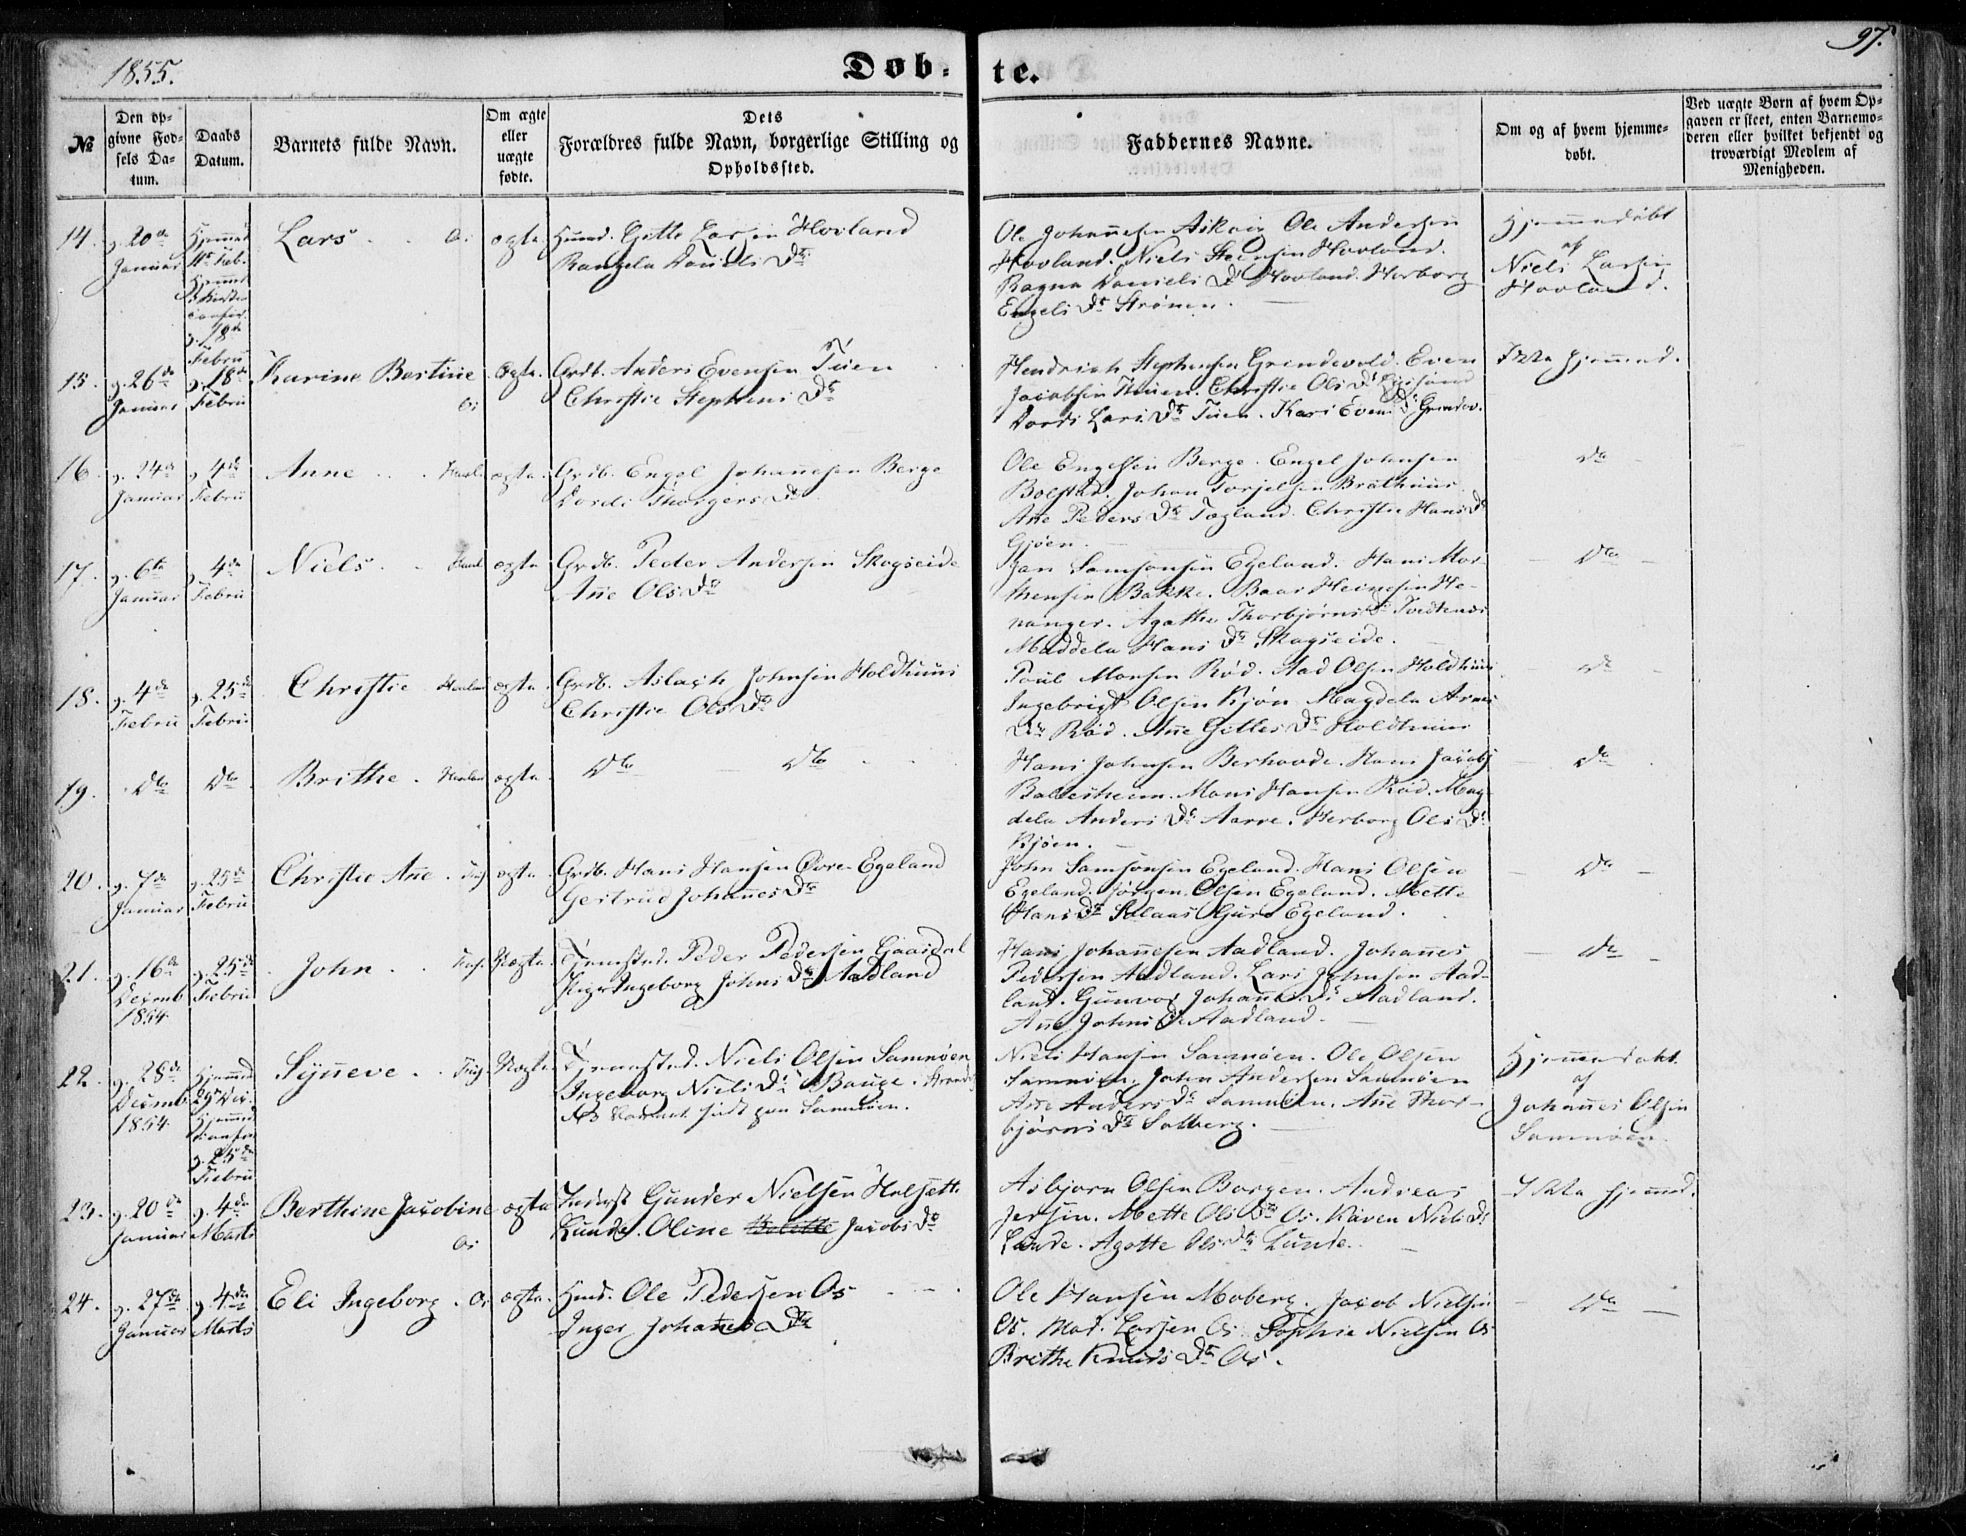 1855.
Døb-
te.
97.
№
Den op-
givne Fød-
sels Da-
tum.
Daabs
Datum.
Barnets fulde Navn.
Om ægte
eller
uægte
fødte.
Dets
Forældres fulde Navn, borgerlige Stilling og
Opholdssted.
Faddernes Navne.
Om og af hvem hjemme-
døbt.
Ved uægte Børn af hvem Op-
gaven er skeet, enten Barnemo-
deren eller hvilket bekjendt og
troværdigt Medlem af
Menigheden.
14.
20de
Januar
Febr
Lars
Os
ægte
Huusm. Gitle Larsen Hovland
Daniels Dtr
Ole Johannesen Askvig Ole Andersen
Hovland. Niels Steensen Hovland.
Ragna Daniels Dr Hovland. Herborg
Engels Dr Strønen.
Hjemmedøbt
af
Niels Larsen
Hovland.
15.
g. 26de
Januar
g. 18de
Febru
Karine Bertine
Os
Ægte.
Grdb. Anders Evensen Tuen
Christie Stephens Dtr
Hendrich Stephensen Grindevold. Even
Jacobsen Tuen. Christie Ols Dr
Lars Dtr Tuen. Kari Evens Dr Grindev.
Ikke hjemmed.
16.
g. 24de
Januar
g. 4de
Febru
Anne
ægte.
Grdb. Engel Johannesen Berge
Thorgers Dr
Ole Engelsen Berge. Engel Johnsen
Bolstad. Johan Torjelsen Brathuus
Añe Peders Dtr Tøgland. Christie Hans Dr
Gjøen.
do
17.
g. 6te
Januar
g. 4de
Febru
Niels
ægte
Grdb. Peder Andersen Skogseide
Añe Ols Dtr
Jan Samsonsen Egeland. Hans Mor-
thensen Bakke. Baar Heinesen He-
nanger. Agathe Thorbjørns Dr
Maddela Hans Dtr Skogseide.
Dto
18.
g. 4de
Febru
g. 25de
Febru
Christie
ægte
Grdb. Aslach Johnsen Holdhuus
Christie Ols Dtr
Poul Monsen Rød. Aad Olsen Holdhuus
Ingebrigt Olsen Kjøn Magdela Arnes
Dtr Rød. Añe Gitles Dtr Holdhuus
do
19.
Dto
Dto
Brithe
ægte
Dto
Dto
Hans Johnsen Berhovde. Hans Jacobs
Balesheim. Mons Hansen Rød. Mag-
dela Anders Dr Aarre. Herborg Ols Dr
Bjøen.
do
20.
g. 7de
Januar
g. 25de
Febru
Christie Añe
Fus
ægte
Grdb. Hans Hansen Øvre-Egeland
Gertrud Johañes Dtr
John Samsonsen Egeland. Hans Olsen
Egeland. Jørgen Olsen Egeland. Mette
Hans Dtr Guro Egeland.
do
21.
g. 16de
Decmb
1854
g. 25de
Febru
John
Fus.
Uægte
Tjenestd. Peder Pedersen Gaasdal
Pige Ingeborg Johns Dtr Aadland
Hans Johañesen Aadland. Johañes
Pedersen Aadland. Lars Johnsen Aad-
land. Gunvor Johañes Dr Aadland.
Añe Johns Dr Aadland.
do
22.
g. 28de
Decmb
1854
Hjemmed
29de Dec.
g. 25de
Febru
Syñeve
Fus.
Uægte
Tjenestd. Niels Olsen Samnøen
Ingeborg Niels Dr Bauge.
født paa Samnøen.
Niels Hansen Samnøen. Ole Olsen
Samnøen. John Andersen Samnøen
Añe Anders Dr Samnøen. Añe Thor-
bjørns Dtr Solberg.
Hjemmedøbt
af
Johañes Olsen
Samnøen.
23.
g. 20de
Januar
g. 4de
Marts
Berthine Jacobine
Os
ægte
Inderst Gunder Nielsen
Lunde. Oline Jacobs Dtr
Asbjørn Olsen Borgen. Andreas
Jersin. Mette Ols Dtr Os. Karen Niels Dr
Lunde. Agatte Ols Dtr Lunde.
Ikke hjemmed.
24.
g. 27de
Januar
g. 4de
Marts
Eli Ingeborg
Os
ægte
Husd. Ole Pedersen Os
Inger Johañes Dtr
Ole Hansen Moberg. Jacob Nielsen
Os. Mad. Larsen Os Sophie Nielsen Os
Brithe Knuds Dtr Os.
Do